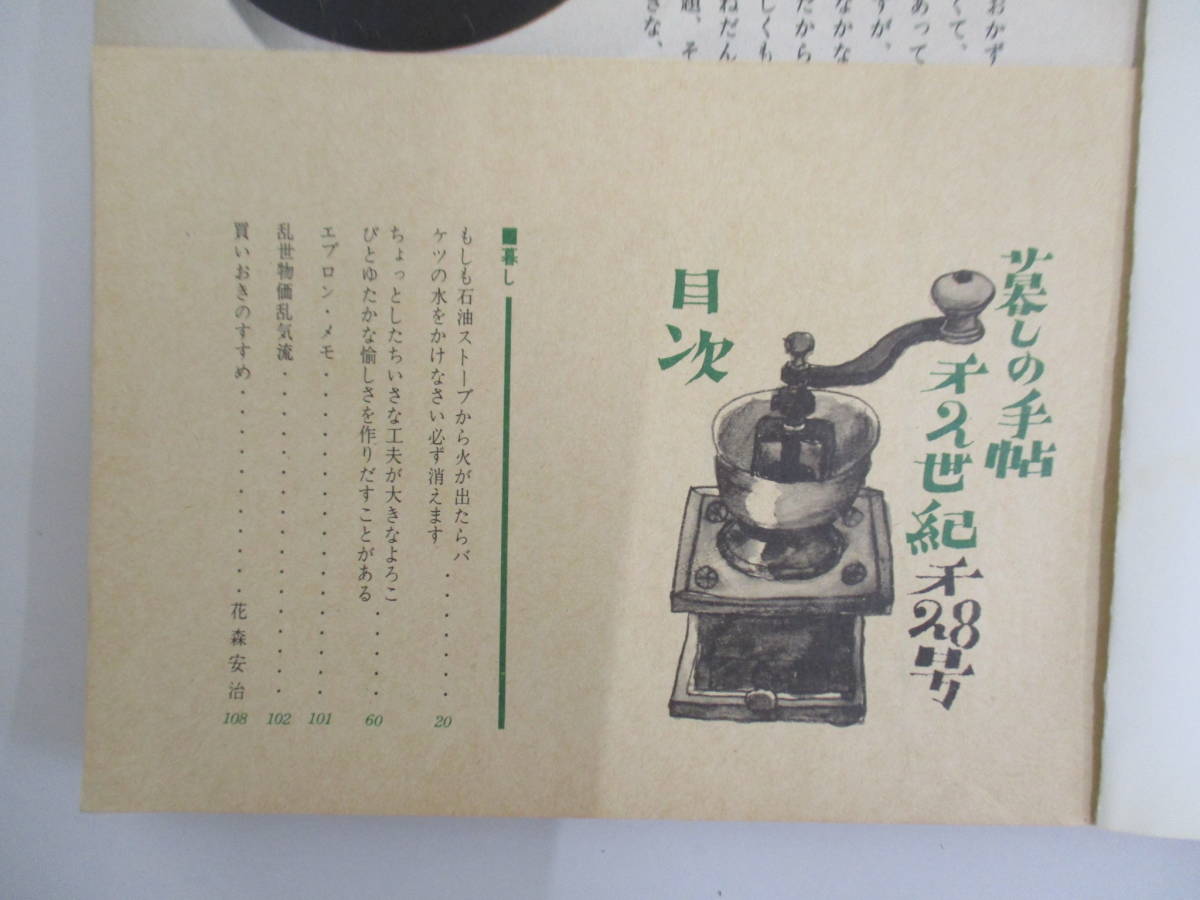 おかず
くて、
あって
すが、
なかな
だから
しくも
ねだん
題、そ
きな、
暮しの手帖
第2世紀
第28号
目次
■暮し
もしも石油ストーブから火が出たらバ
ケツの水をかけなさい必ず消えます・・・・・・・20
ちょっとしたちいさな工夫が大きなよろこ
びとゆたかな愉しさを作りだすことがある・・・・・60
エプロン・メモ・・・・・・・・・・・・・・・・101
乱世物価乱気流・・・・・・・・・・・・・・・・102
買いおきのすすめ・・・・・・・・・・花森安治 108